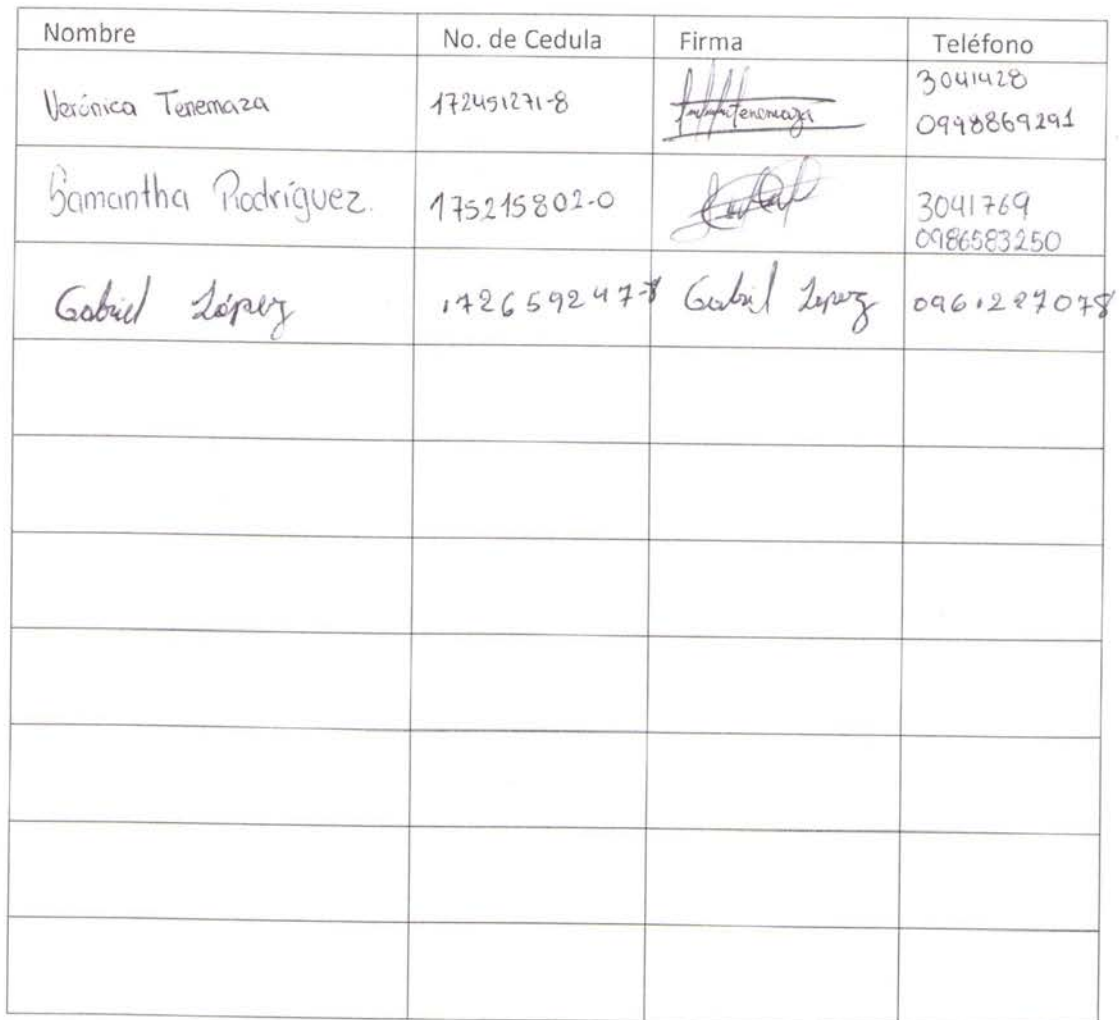 Nombre No. de Cedula Firma Teléfono
3041428
Verónica Tenemaza 172451271-8 tenemaza 0998869291
Samantha Rodríguez. 175215802-0 3041769
0986583250
Gabriel López 172659247-8 Gabriel Lopez 0961287078